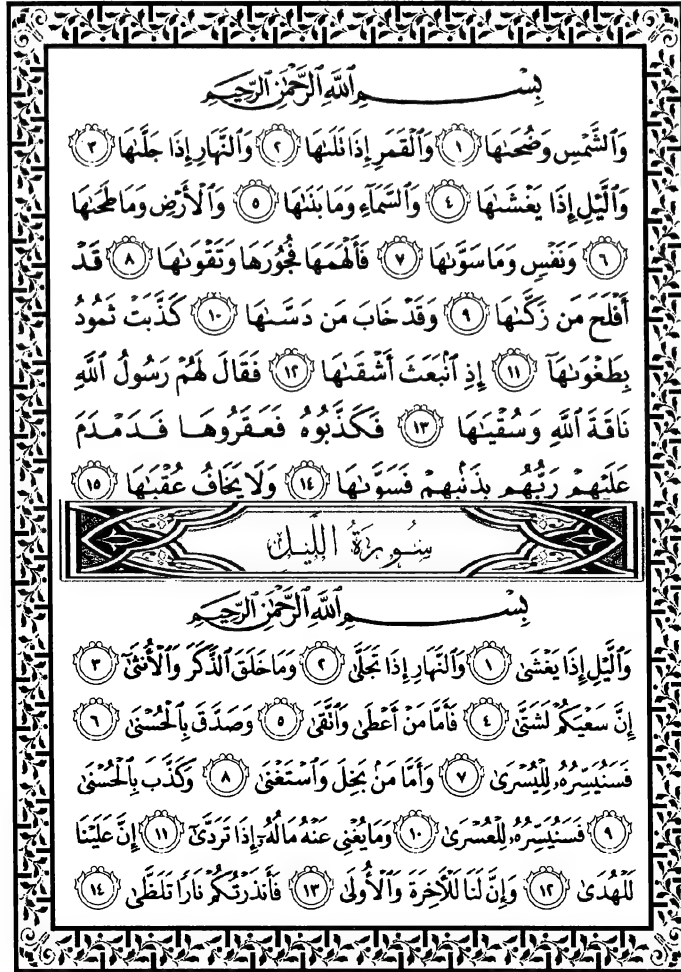 بِسْمِ ٱللَّهِ ٱلرَّحْمَٰنِ ٱلرَّحِيمِ
وَٱلشَّمْسِ وَضُحَىٰهَا ١ وَٱلْقَمَرِ إِذَا تَلَىٰهَا ٢ وَٱلنَّهَارِ إِذَا جَلَّىٰهَا ٣
وَٱلَّيْلِ إِذَا يَغْشَىٰهَا ٤ وَٱلسَّمَآءِ وَمَا بَنَىٰهَا ٥ وَٱلْأَرْضِ وَمَا طَحَىٰهَا
٦ وَنَفْسٍ وَمَا سَوَّىٰهَا ٧ فَأَلْهَمَهَا فُجُورَهَا وَتَقْوَىٰهَا ٨ قَدْ
أَفْلَحَ مَن زَكَّىٰهَا ٩ وَقَدْ خَابَ مَن دَسَّىٰهَا ١٠ كَذَّبَتْ ثَمُودُ
بِطَغْوَىٰهَآ ١١ إِذِ ٱنۢبَعَثَ أَشْقَىٰهَا ١٢ فَقَالَ لَهُمْ رَسُولُ ٱللَّهِ
نَاقَةَ ٱللَّهِ وَسُقْيَٰهَا ١٣ فَكَذَّبُوهُ فَعَقَرُوهَا فَدَمْدَمَ
عَلَيْهِمْ رَبُّهُم بِذَنۢبِهِمْ فَسَوَّىٰهَا ١٤ وَلَا يَخَافُ عُقْبَٰهَا ١٥
سُورَةُ اللَّيْلِ
بِسْمِ ٱللَّهِ ٱلرَّحْمَٰنِ ٱلرَّحِيمِ
وَٱلَّيْلِ إِذَا يَغْشَىٰ ١ وَٱلنَّهَارِ إِذَا تَجَلَّىٰ ٢ وَمَا خَلَقَ ٱلذَّكَرَ وَٱلْأُنثَىٰٓ ٣
إِنَّ سَعْيَكُمْ لَشَتَّىٰ ٤ فَأَمَّا مَنْ أَعْطَىٰ وَٱتَّقَىٰ ٥ وَصَدَّقَ بِٱلْحُسْنَىٰ ٦
فَسَنُيَسِّرُهُۥ لِلْيُسْرَىٰ ٧ وَأَمَّا مَنۢ بَخِلَ وَٱسْتَغْنَىٰ ٨ وَكَذَّبَ بِٱلْحُسْنَىٰ
٩ فَسَنُيَسِّرُهُۥ لِلْعُسْرَىٰ ١٠ وَمَا يُغْنِى عَنْهُ مَالُهُۥٓ إِذَا تَرَدَّىٰٓ ١١ إِنَّ عَلَيْنَا
لَلْهُدَىٰ ١٢ وَإِنَّ لَنَا لَلْـَٔاخِرَةَ وَٱلْأُولَىٰ ١٣ فَأَنذَرْتُكُمْ نَارًا تَلَظَّىٰ ١٤